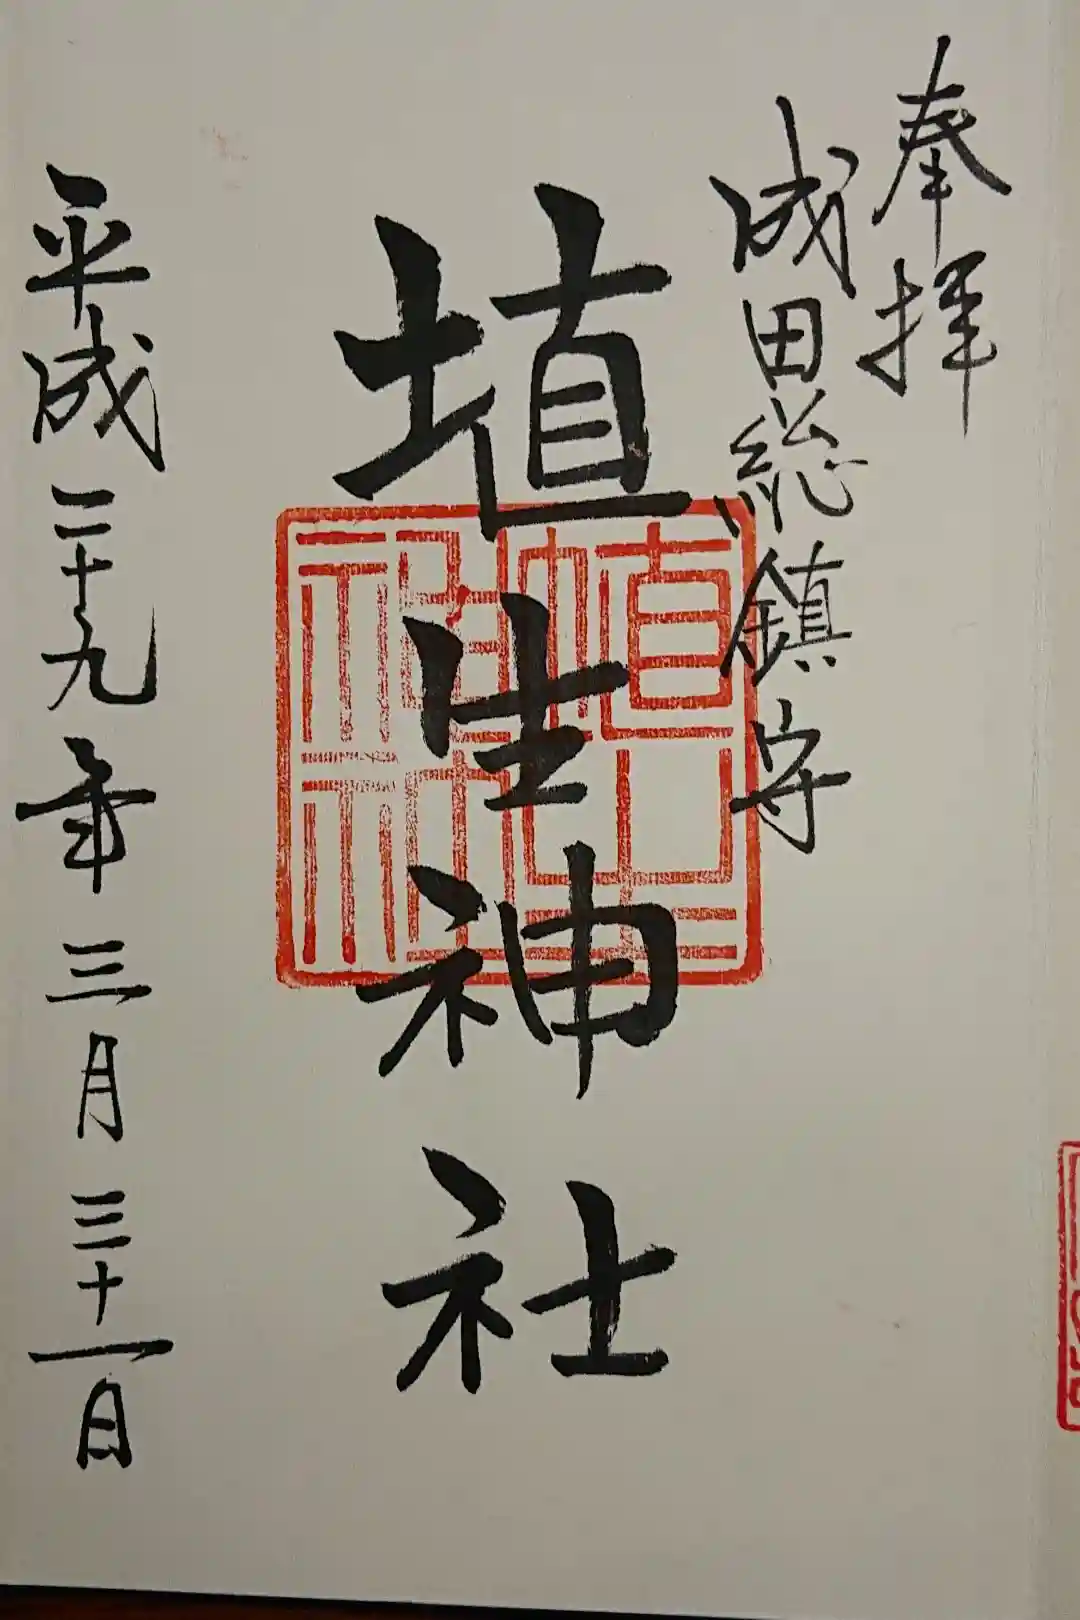 奉拝
成田総鎮守
埴生神社
埴生神社
平成二十九年三月三十一日